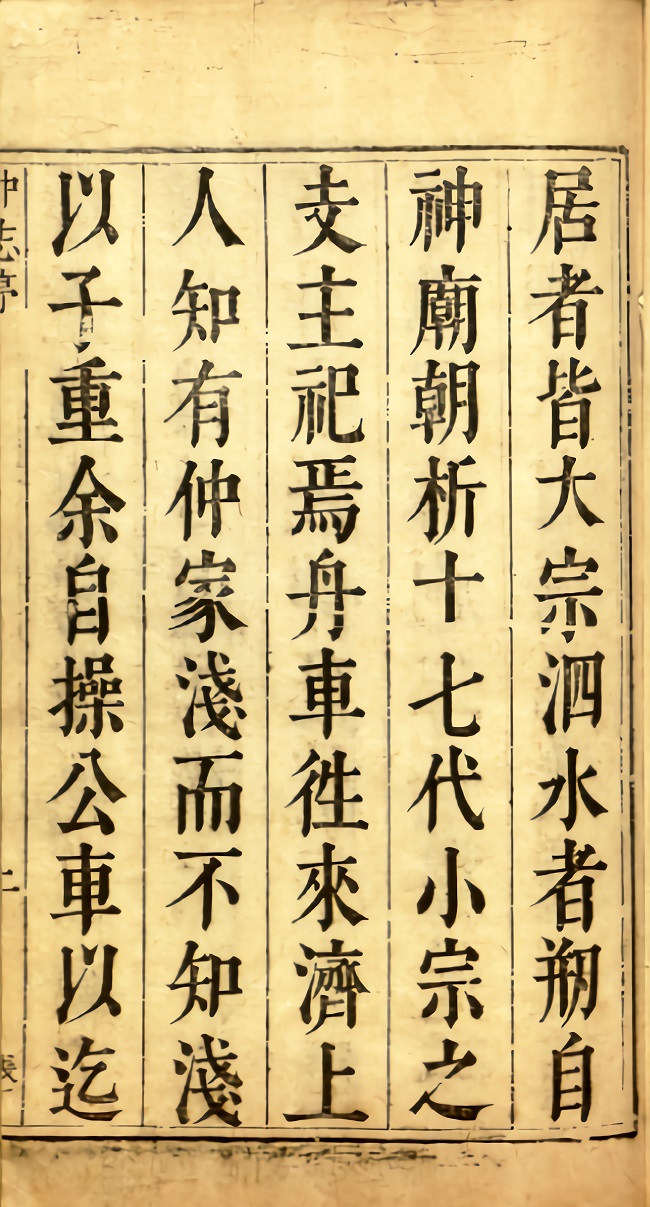 居者皆大宗泗水者剏自
神廟朝析十七代小宗之
支主祀焉舟車徃來濟上
人知有仲家淺而不知淺
以子重余自操公車以迄
仲志序
二